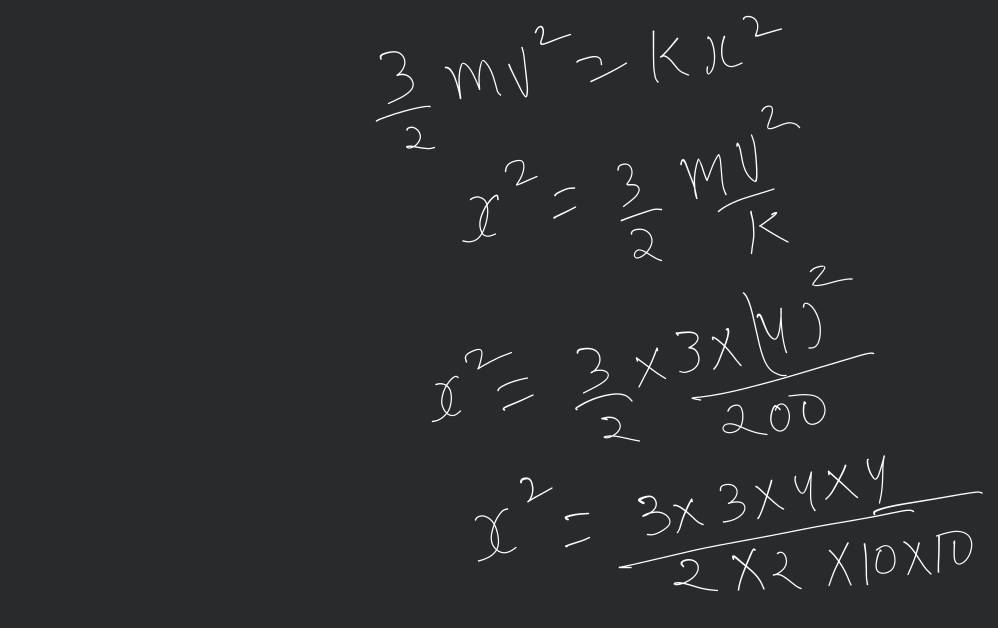 3/2 mv² = Kx²
x² = 3/2 mv²/K
x² = 3/2 × 3×(4)²/200
x² = 3×3×4×4/2×2×10×10